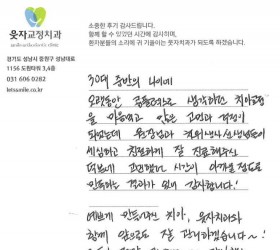 웃자교정치과
소중한 후기 감사드립니다.
함께 할 수 있었던 시간에 감사하며,
환자분들의 소리에 귀 기울이는 웃자치과가 되도록 하겠습니다.
경기도 성남시 중원구 성남대로
1156 도원타워 3,4층
031 606 0282
letsusmile.co.kr
30대 중반의 나이에
오랫동안 콤플렉스로 생각하던 치아교정
을 마음먹고 많은 고민과 걱정이
되었는데 원장님과 선생님들이
세심하고 친절하게 잘 진료해주셔서
더분에 시간이
만족하는 결과가 되어 감사합니다!
예쁘게 만들어주신 치아, 웃자치과와
함께 앞으로도 잘 관리하겠습니다~!